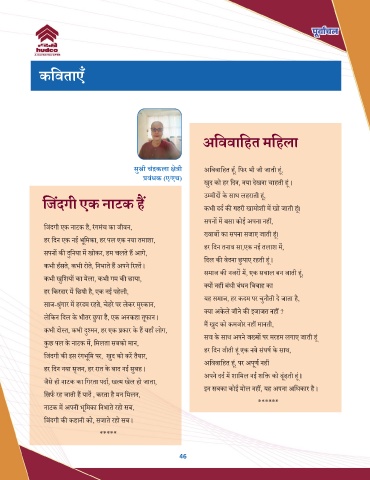 पूर्वांचल
hudco
कविताएँ
सुश्री चंद्रकला क्षेत्री
प्रबंधक (ए/एच)
जिंदगी एक नाटक हैं
जिंदगी एक नाटक है, रंगमंच का जीवन,
हर दिन एक नई भूमिका, हर पल एक नया तमाशा,
सपनों की दुनिया में खोकर, हम चलते हैं आगे,
कभी हँसते, कभी रोते, निभाते हैं अपने रिश्ते।
कभी खुशियों का मेला, कभी गम की छाया,
हर किरदार में छिपी है, एक नई पहेली,
साज-श्रृंगार में हरदम रहते, चेहरे पर लेकर मुस्कान,
लेकिन दिल के भीतर छुपा है, एक अनकहा तूफान।
कभी दोस्त, कभी दुश्मन, हर एक प्रकार के हैं यहाँ लोग,
कुछ पल के नाटक में, मिलता सबको मान,
जिंदगी की इस रंगभूमि पर, खुद को करें तैयार,
हर दिन नया सृजन, हर रात के बाद नई सुबह।
जैसे ही नाटक का गिरता पर्दा, खत्म खेल हो जाता,
सिर्फ रह जाती हैं यादें, करता है मन मिलन,
नाटक में अपनी भूमिका निभाते रहो सब,
जिंदगी की कहानी को, सजाते रहो सब।
*****
अविवाहित महिला
अविवाहित हूं, फिर भी जी जाती हूं,
खुद को हर दिन, नया देखना चाहती हूं।
उम्मीदों के साथ लहराती हूं,
कभी दर्द की गहरी खामोशी में खो जाती हूं।
सपनों में बसा कोई अपना नहीं,
ख्वाबों का सपना सजाए जाती हूं।
हर दिन तनाव सा,एक नई तलाश में,
दिल की वेदना छुपाए रहती हूं।
समाज की नजरों में, एक सवाल बन जाती हूं,
क्यों नहीं बंधी बंधन विवाह का
यह समाज, हर कदम पर चुनौती दे जाता है,
क्या अकेले जीने की इजाजत नहीं ?
मैं खुद को कमजोर नहीं मानती,
सच के साथ अपने जख्मों पर मरहम लगाए जाती हूं
हर दिन जीती हूं एक नये संघर्ष के साथ,
अविवाहित हूं, पर अपूर्ण नहीं
अपने दर्द में शामिल नई शक्ति को ढूंढती हूं।
इन सबका कोई मोल नहीं, यह अपना अधिकार है।
******
46